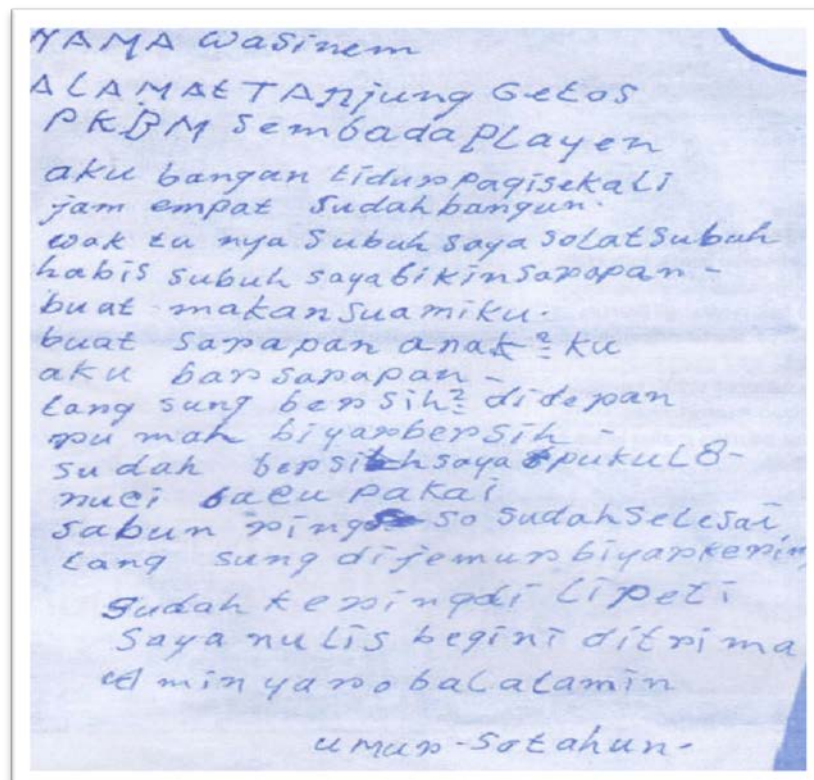 NAMA wasinem
ALAMAt TANjung Getos
PKBM Sembada PLayen
aku bangan tidur pagisekali
jam empat sudah bangun.
wak tu nya subuh saya solat subuh
habis subuh saya bikin sarapan -
buat makan suamiku.
buat sarapan anak2 ku
aku bar sarapan -
lang sung bersih2 didepan
ru mah biyarbersih -
su dah bersih saya pukul 8 -
nuci baeu pakai
sabun ring so sudah selesai
lang sung dijemur biyarkerin
sudah keringdi lipeti
saya nulis begini ditrima
Amin yarobalalamin
umur - 50tahun -